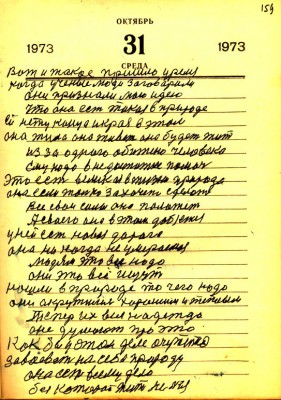 159
ОКТЯБРЬ
1973 31 1973
СРЕДА
Вот и такое пришло время
когда ученые люди заговорили
они признали мою идею
что она ест такая в природе
ей нету конца и края в этом
она жила она живет она будет жит
из за одного обижено человека
ему надо в недостатке помоч
Это ест великая природа
она если только захочит сделает
Все свои силы она положет
А своего она в этом добьется
у ней ест новая дорога
она никогда не умирает
Людям это все надо
они это всё ищут
нашли в природе то чего надо
они окружили хорошим и теплым
Тепер их вся надежда
оне думают про это
Как бы в этом деле
завоеват на себе природу
она ест всему дело
без которой жит не